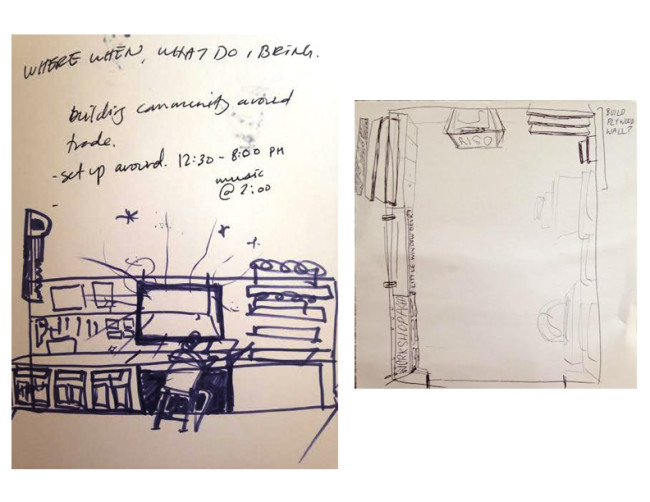 WHERE WHEN, WHAT DO I BRING.
building community around
trade.
- set up around. 12:30 - 8:00 PM
music
@ 2:00
-
RISO
BUILD
PLYWOOD
WALL?
WORKSHOP